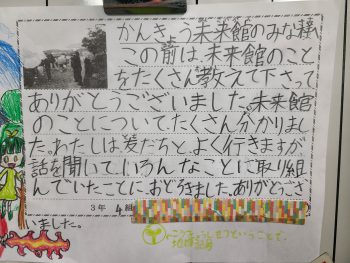 かんきょう未来館のみな様
この前は、未来館のこと
をたくさん教えて下さって
ありがとうございました。未来館
のことについてたくさん分かりまし
た。わたしは麦だちと、よく行きますが
話を聞いて、いろんなことに取り組
んでいたことに、おどろきました。ありがとうござ
3年 4組
いました。